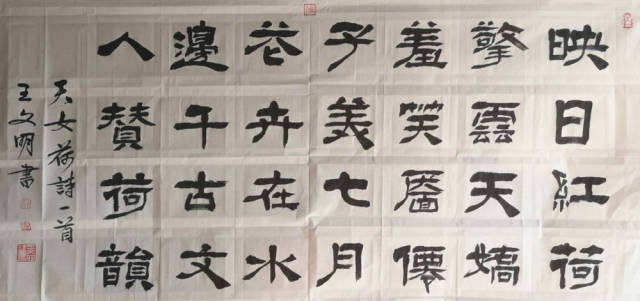 映日紅荷
擎雲天嬌
羞笑靨僊
子美七月
花卉在水
邊千古文
人贊荷韻
天女荷詩一首
王文明書